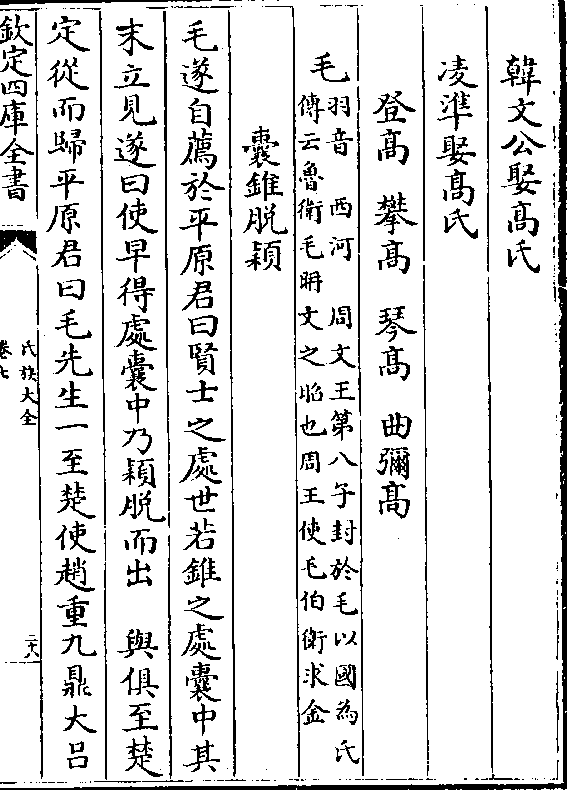 韓文公娶髙氏
凌準娶髙氏
登髙　攀髙　琴髙　曲彌髙
毛
羽音　西河　周文王第八子封於毛以國為氏
傳云魯衛毛聃文之昭也周王使毛伯衛求金
囊錐脱穎
毛遂自薦於平原君曰賢士之處世若錐之處囊中其
末立見遂曰使早得處囊中乃穎脱而出　與俱至楚
定從而歸平原君曰毛先生一至楚使趙重九鼎大吕
欽定四庫全書
氏族大全
卷七